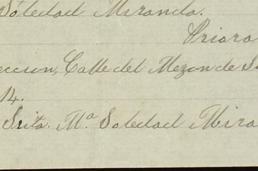 Soledad Miranda.
Priora
ección, Calle del Mezon de S
14.
Srita. Mª Soledad Mira